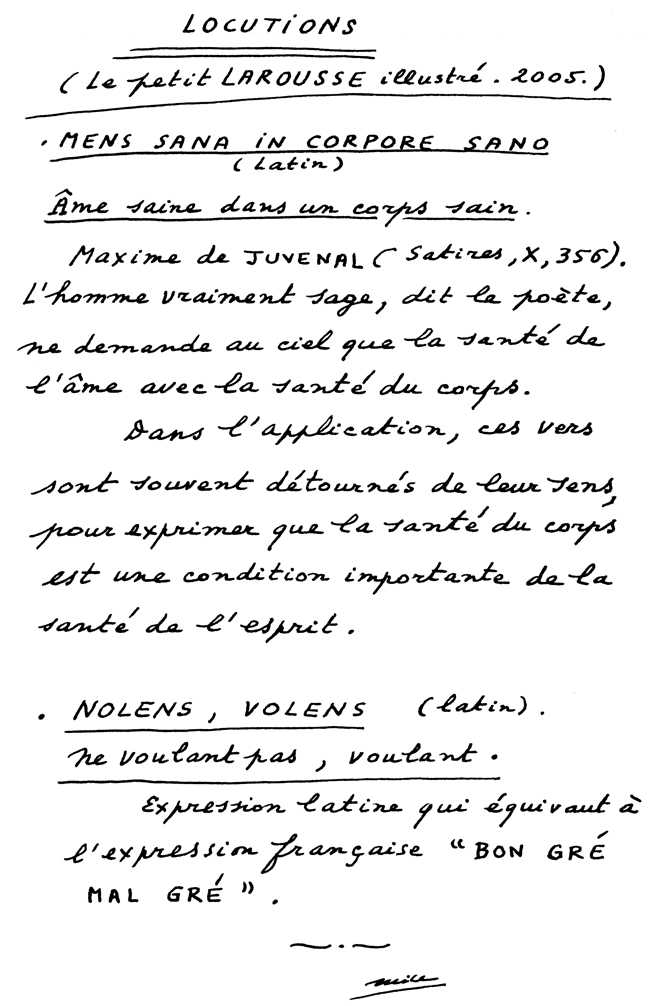 LOCUTIONS
(Le petit LAROUSSE illustré. 2005.)
. MENS SANA IN CORPORE SANO
(Latin)
Âme saine dans un corps sain.
Maxime de JUVENAL (Satires, X, 356).
L'homme vraiment sage, dit le poète,
ne demande au ciel que la santé de
l'âme avec la santé du corps.
Dans l'application, ces vers
sont souvent détournés de leur sens,
pour exprimer que la santé du corps
est une condition importante de la
santé de l'esprit.
. NOLENS, VOLENS (latin).
ne voulant pas, voulant.
Expression latine qui équivaut à
l'expression française "BON GRÉ
MAL GRÉ".